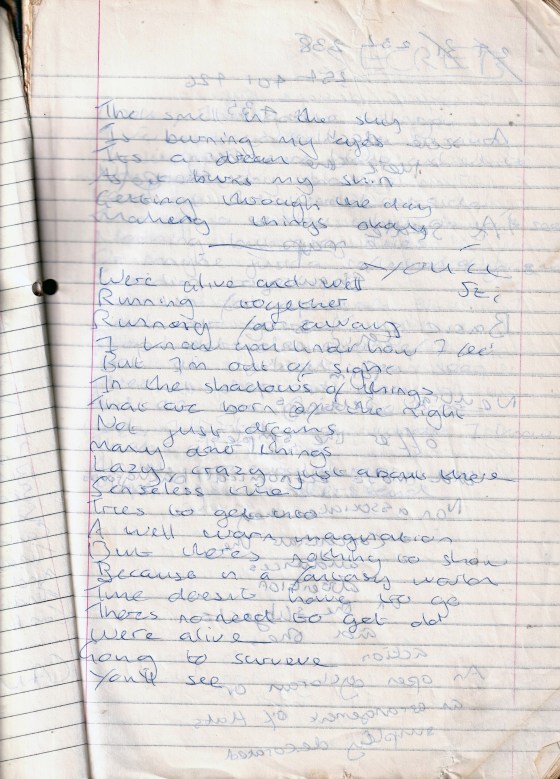 The sun in the sky
Is burning my eyes
Its a dream
As it burns my skin
Getting through the day
Making things okay
Were alive and well
Running together
Running far away
I know you know how I feel
But I'm out of sight
In the shadows of things
That are born of the night
Not just dreams
Many and things
Lazy, crazy, just about there
Senseless time
Tries to get into
A well worn imagination
But theres nothing to show
Because in a fantasy world
Time doesnt have to go
Theres no need to get old
Were alive
Going to survive
You'll see